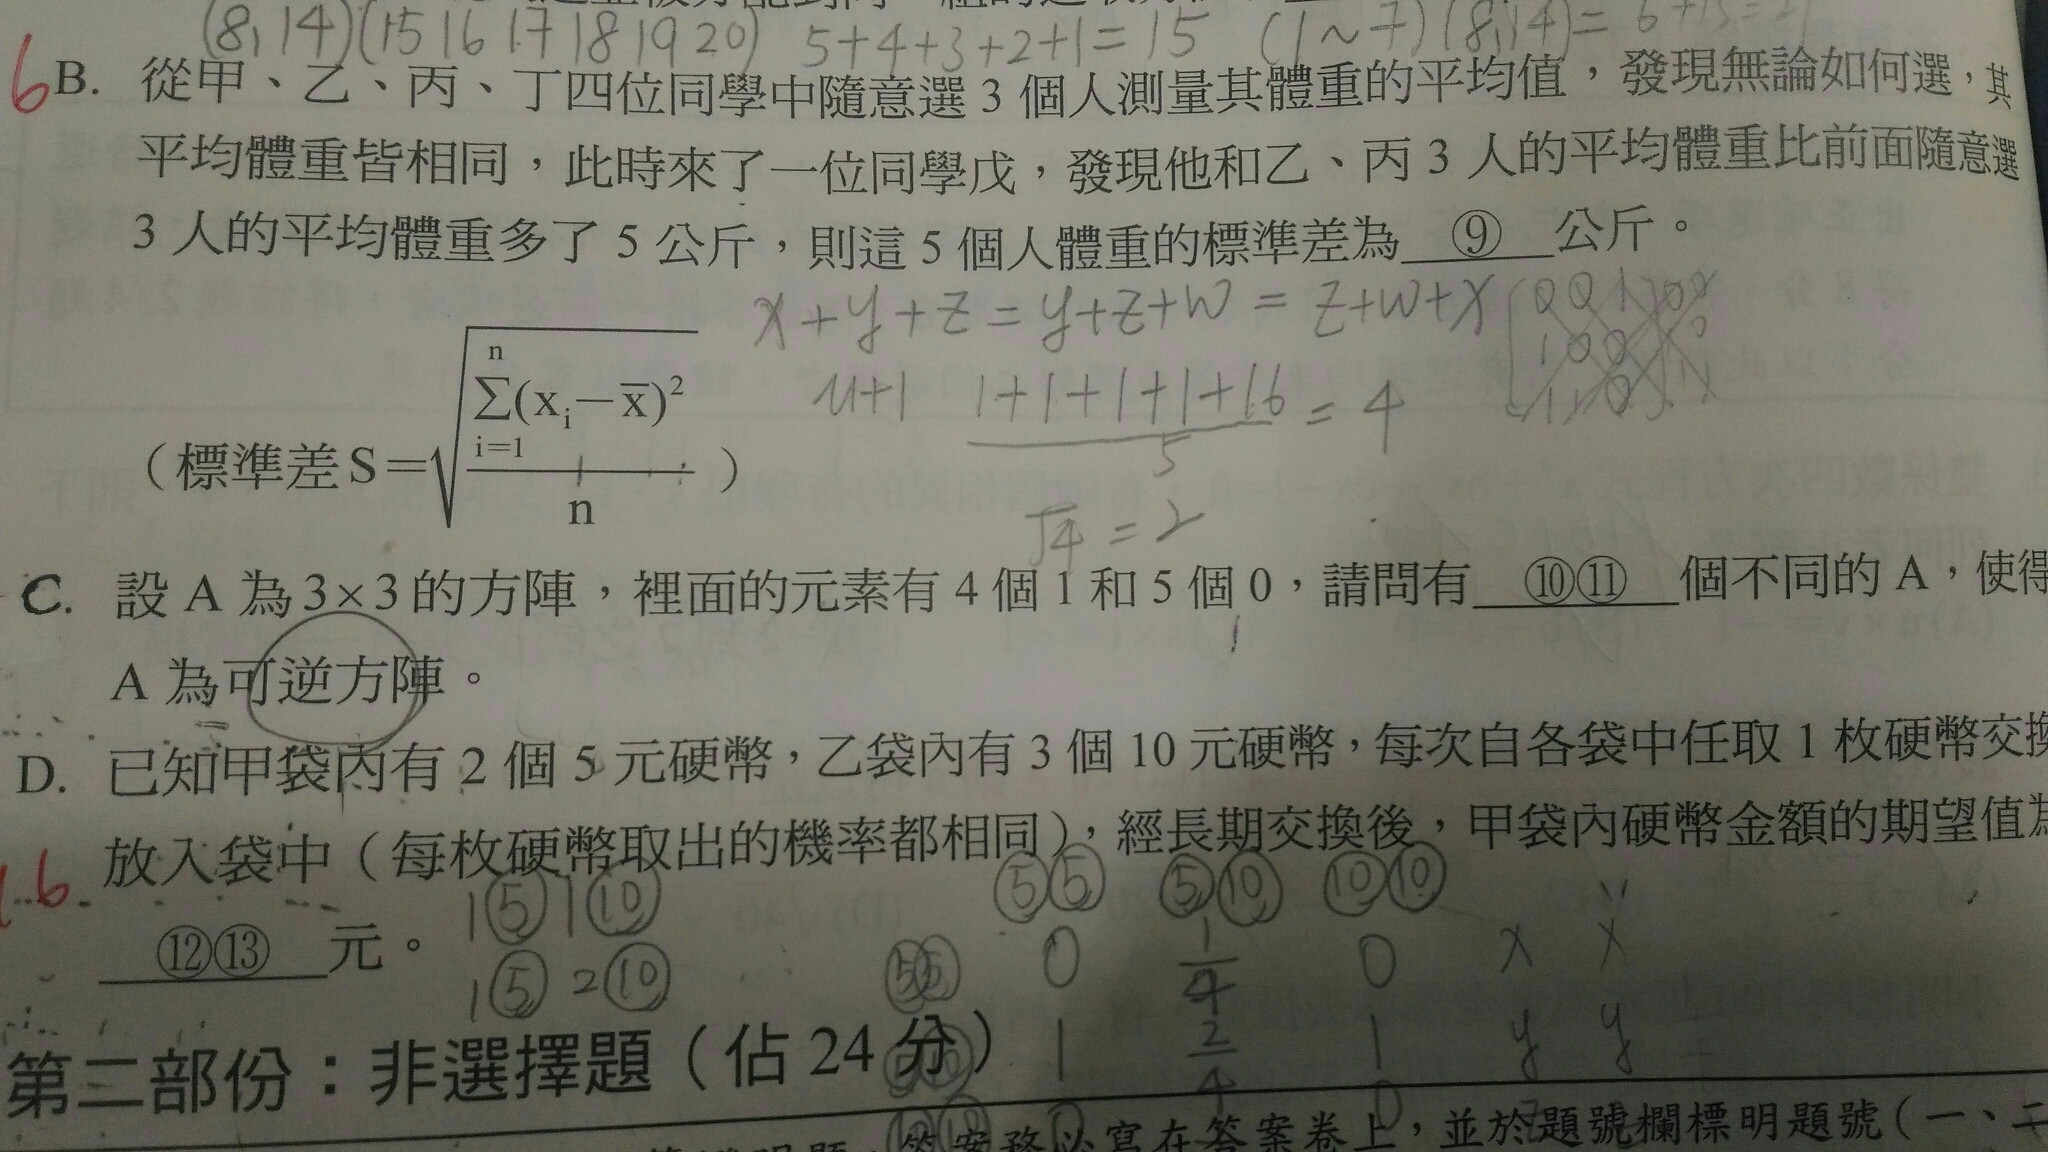 (8,14)(15 16 17 18 19 20) 5+4+3+2+1=15 (1~7)(8,14)=
6 B. 從甲、乙、丙、丁四位同學中隨意選 3 個人測量其體重的平均值，發現無論如何選，其
平均體重皆相同，此時來了一位同學戊，發現他和乙、丙 3 人的平均體重比前面隨意選
3 人的平均體重多了 5 公斤，則這 5 個人體重的標準差為 ⑨ 公斤。
x+y+z=y+z+w=z+w+x
(標準差S=√(Σ(xᵢ－x̄)²/n))
n
i=1
1+1+1+1+16 = 4
5
√4 = 2
C. 設 A 為 3×3 的方陣，裡面的元素有 4 個 1 和 5 個 0，請問有 ⑩⑪ 個不同的 A，使得
A 為可逆方陣。
D. 已知甲袋內有 2 個 5 元硬幣，乙袋內有 3 個 10 元硬幣，每次自各袋中任取 1 枚硬幣交換
放入袋中（每枚硬幣取出的機率都相同），經長期交換後，甲袋內硬幣金額的期望值為
⑫⑬ 元。
1⑤ 1⑩ ⑤⑤ ⑤⑩ ⑩⑩
1⑤ 2⑩ 0 1/4 0 x x
1 2/4 1 y y
第二部份：非選擇題（佔 24 分）
答案務必寫在答案卷上，並於題號欄標明題號（一、二